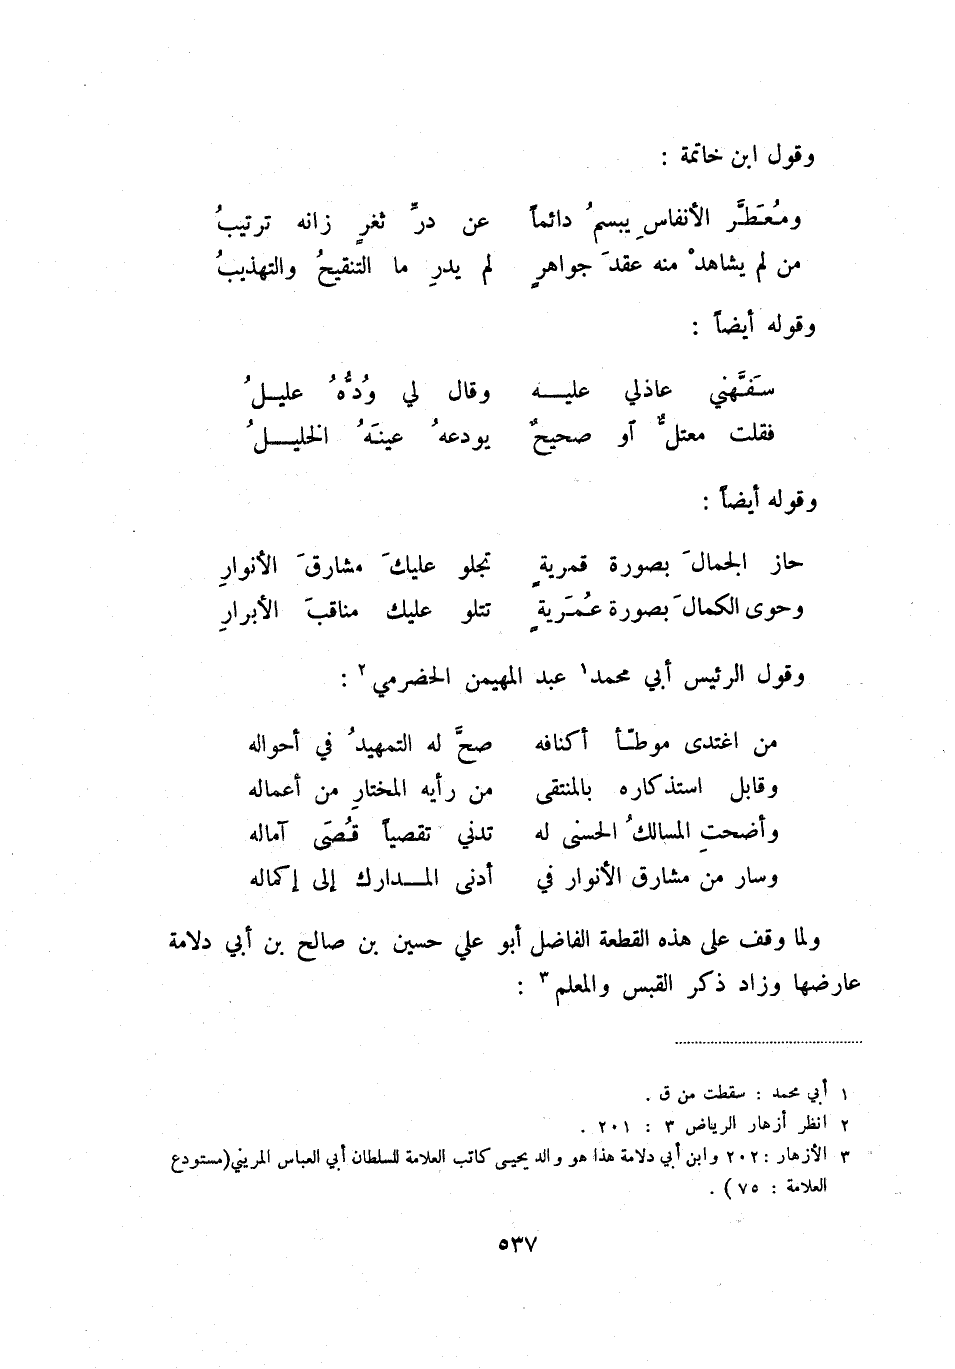 وقول ابن خاتمة :
ومُعَطَّر الأنفاسِ يبسمُ دائماً عن درِّ ثغرٍ زانه ترتيبُ
من لم يشاهدْ منه عقدَ جواهرٍ لم يدرِ ما التنقيحُ والتهذيبُ
وقوله أيضاً :
سَفَّهني عاذلي عليـــه وقال لي وُدُّهُ عليـلُ
فقلت معتلٌّ أو صحيحٌ يودعهُ عينَهُ الخليــلُ
وقوله أيضاً :
حاز الجمالَ بصورة قمريةٍ تجلو عليكَ مشارقَ الأنوارِ
وحوى الكمالَ بصورة عُمَريةٍ تتلو عليك مناقبَ الأبرارِ
وقول الرئيس أبي محمد١ عبد المهيمن الحضرمي٢ :
من اغتدى موطـّأ أكنافه صحَّ له التمهيدُ في أحواله
وقابل استذكاره بالمنتقى من رأيه المختارِ من أعماله
وأضحتِ المسالكُ الحسنى له تدني تقصياً قُصَى آماله
وسار من مشارق الأنوار في أدنى المــدارك إلى إكماله
ولما وقف على هذه القطعة الفاضل أبو علي حسين بن صالح بن أبي دلامة
عارضها وزاد ذكر القبس والمعلم٣ :
١ أبي محمد : سقطت من ق .
٢ انظر أزهار الرياض ٣ : ٢٠١ .
٣ الأزهار : ٢٠٢ وابن أبي دلامة هذا هو والد يحيى كاتب العلامة للسلطان أبي العباس المريني (مستودع
العلامة : ٧٥) .
٥٣٧